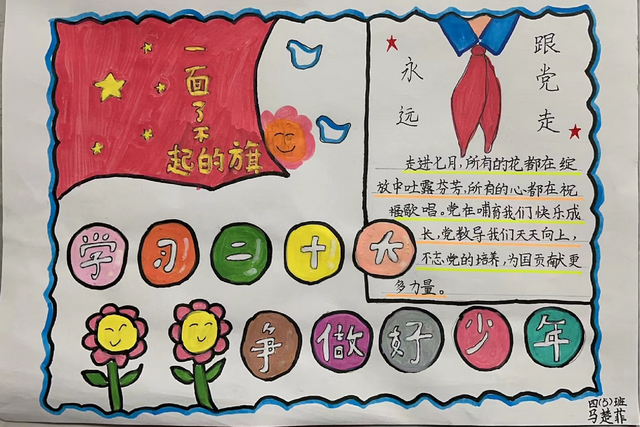 一面了不
起的旗
永远
跟党走
走进七月,所有的花都在绽
放中吐露芬芳,所有的心都在祝
福歌唱。党在哺育我们快乐成
长,党教导我们天天向上,
不忘党的培养,为国贡献更
多力量。
学习二十大
争做好少年
四(5)班
马楚菲